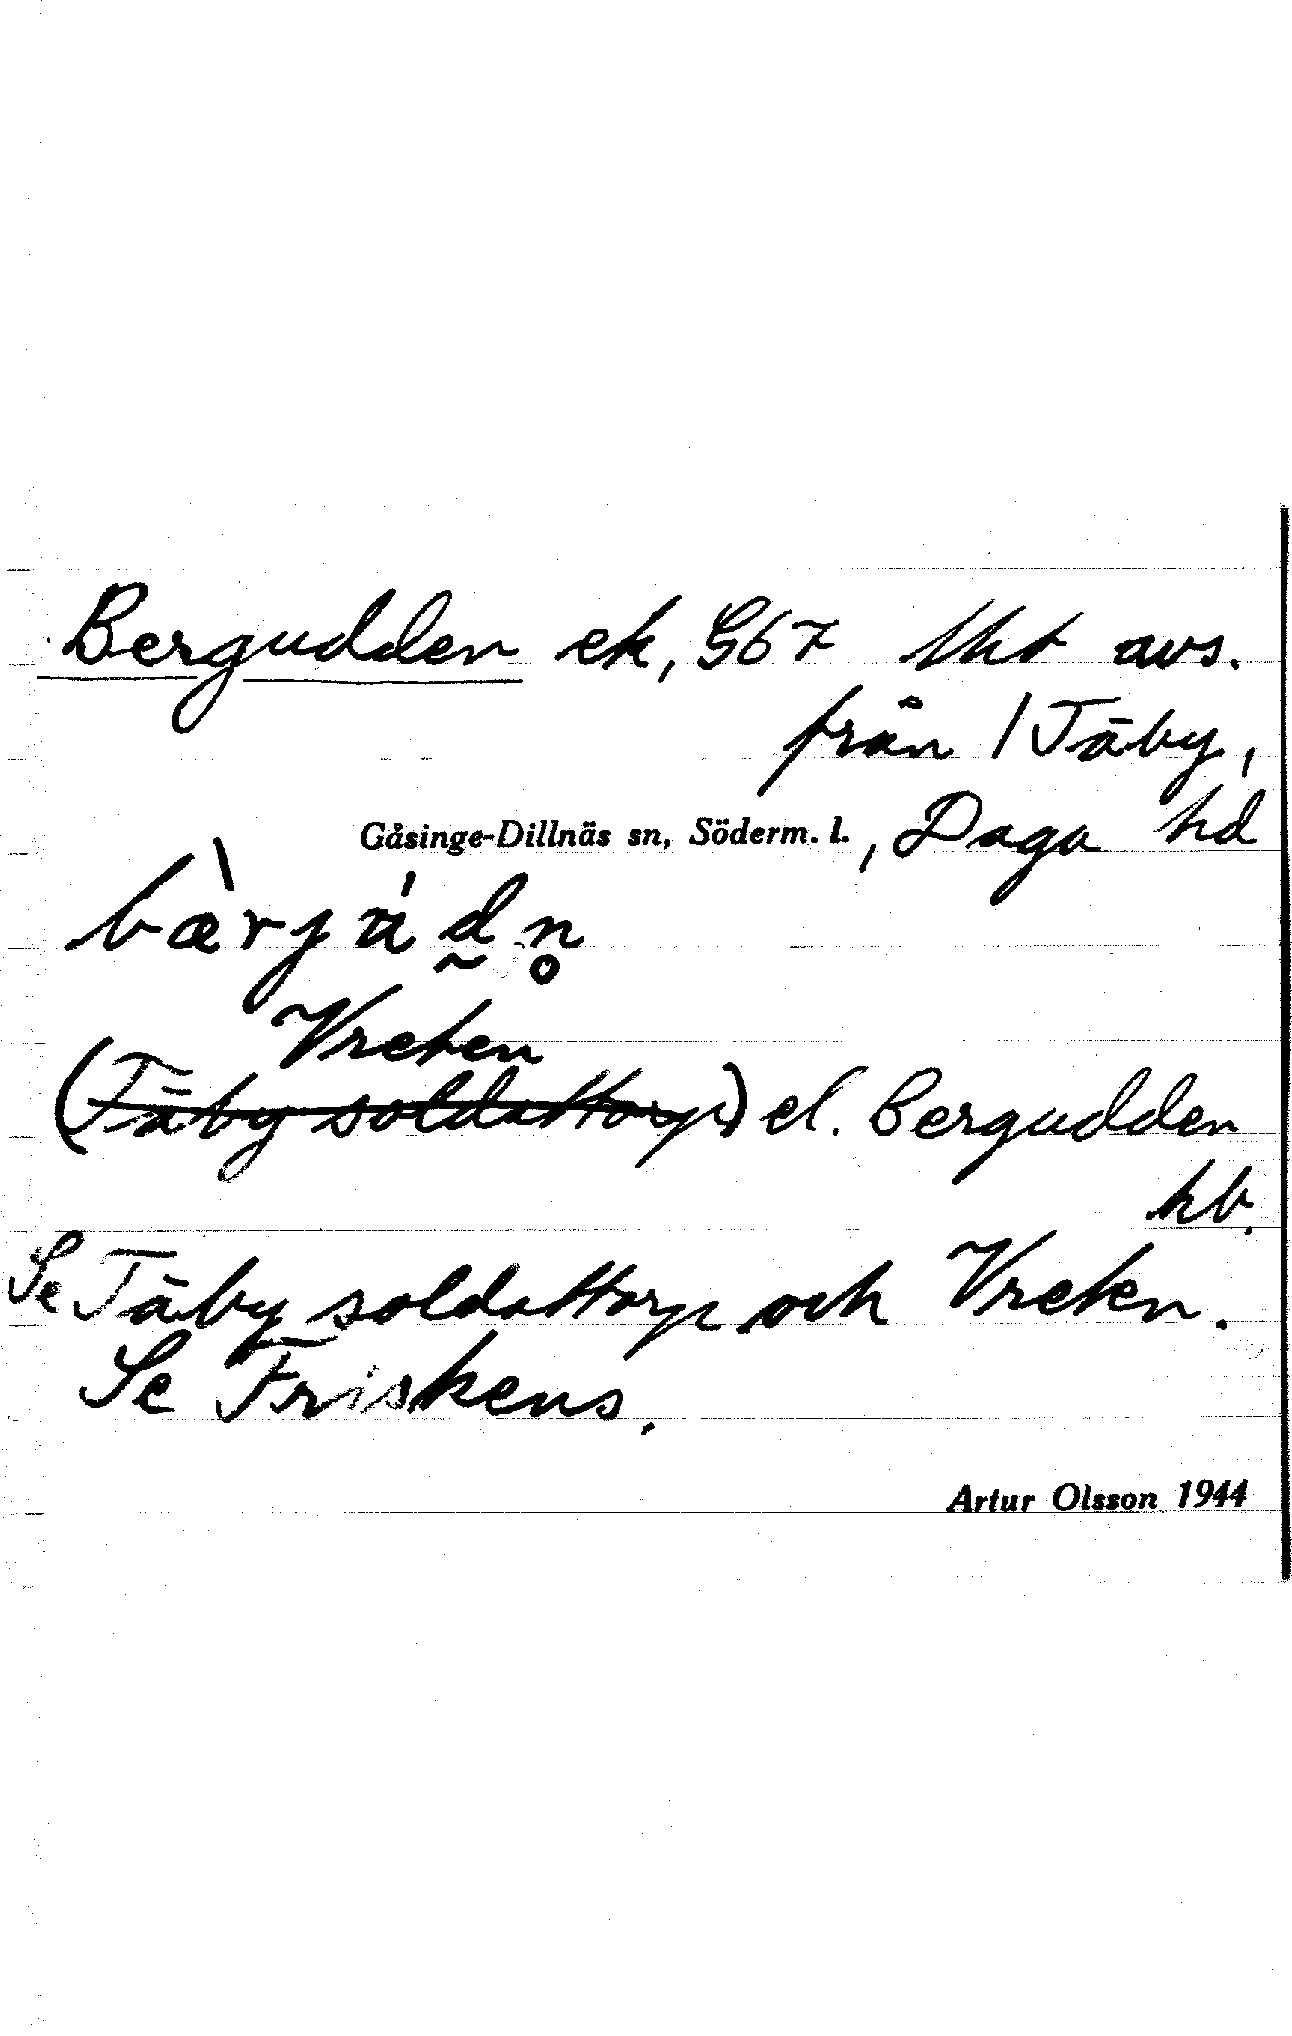 Bergudden ek, G67 1ht avs.
från 1 Täby,
Gåsinge-Dillnäs sn, Söderm. l., Daga hd
bæ̀rjúd̰n̥
Vreten
(Täby soldattorp) el. Bergudden
hb.
Se Täby soldattorp och Vreten.
Se Friskens.
Artur Olsson 1944